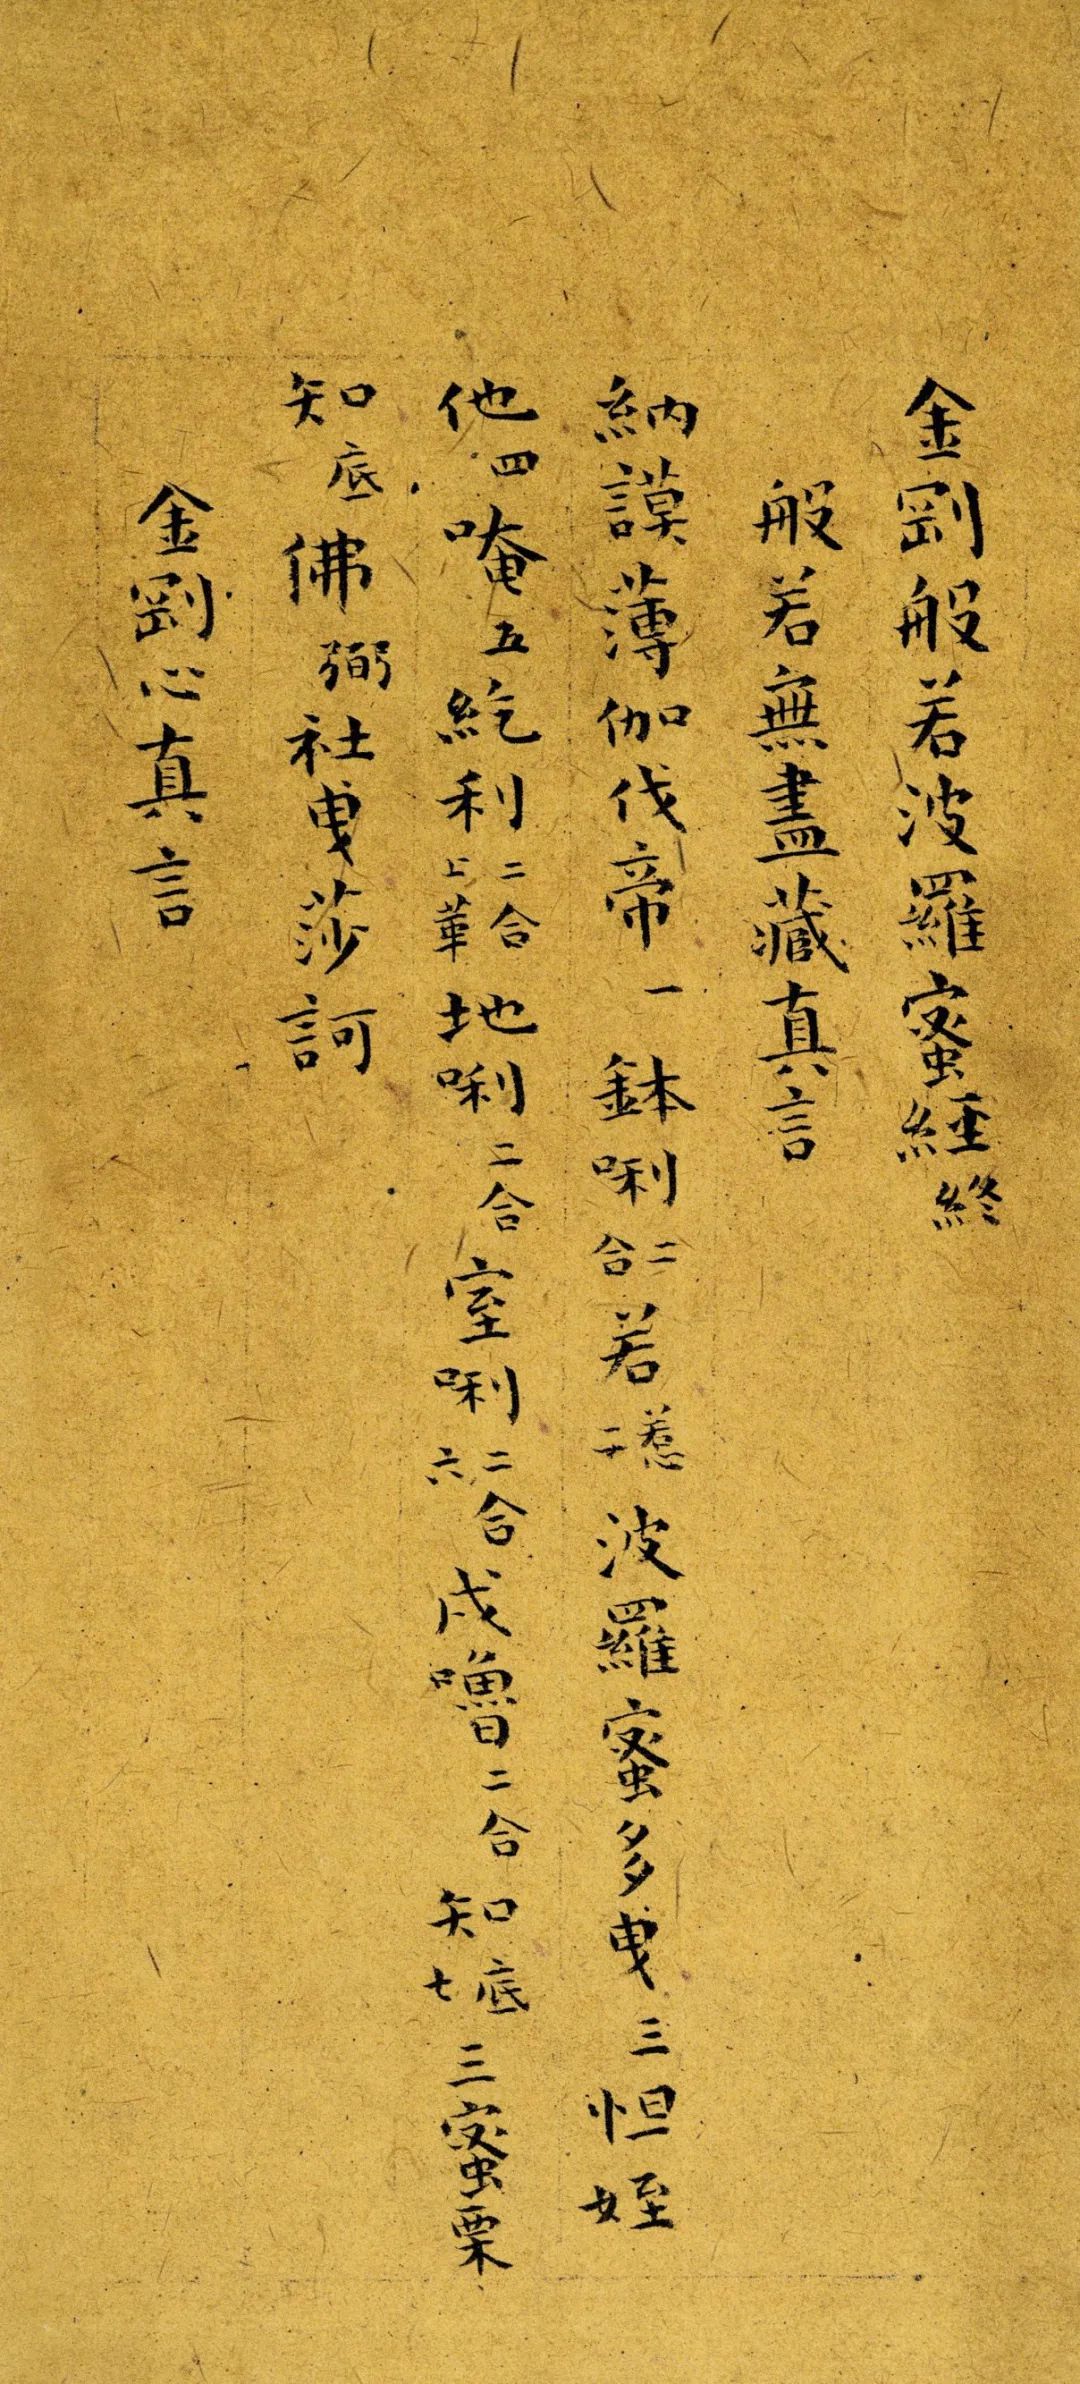 金剛般若波羅蜜經終
般若無盡藏真言
納謨薄伽伐帝一鉢唎二合若惹二波羅蜜多曳三怛姪
他四唵五紇利二合上華地唎二合室唎二合六戍嚕二合知底七三蜜栗
知底佛弼社曳莎訶
金剛心真言